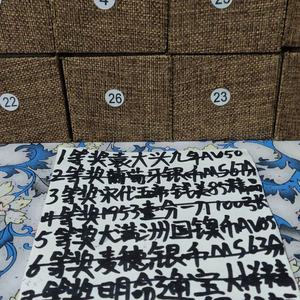 4
22
26
23
1等奖袁大头九年AU50
2等奖葡萄牙银币MS67分
3等奖宋代五帝钱85精品
4等奖1953壹分一刀100张
5等奖大满洲国镍币AU05
6等奖麦穗银币MS63分
等奖明命通宝大样精